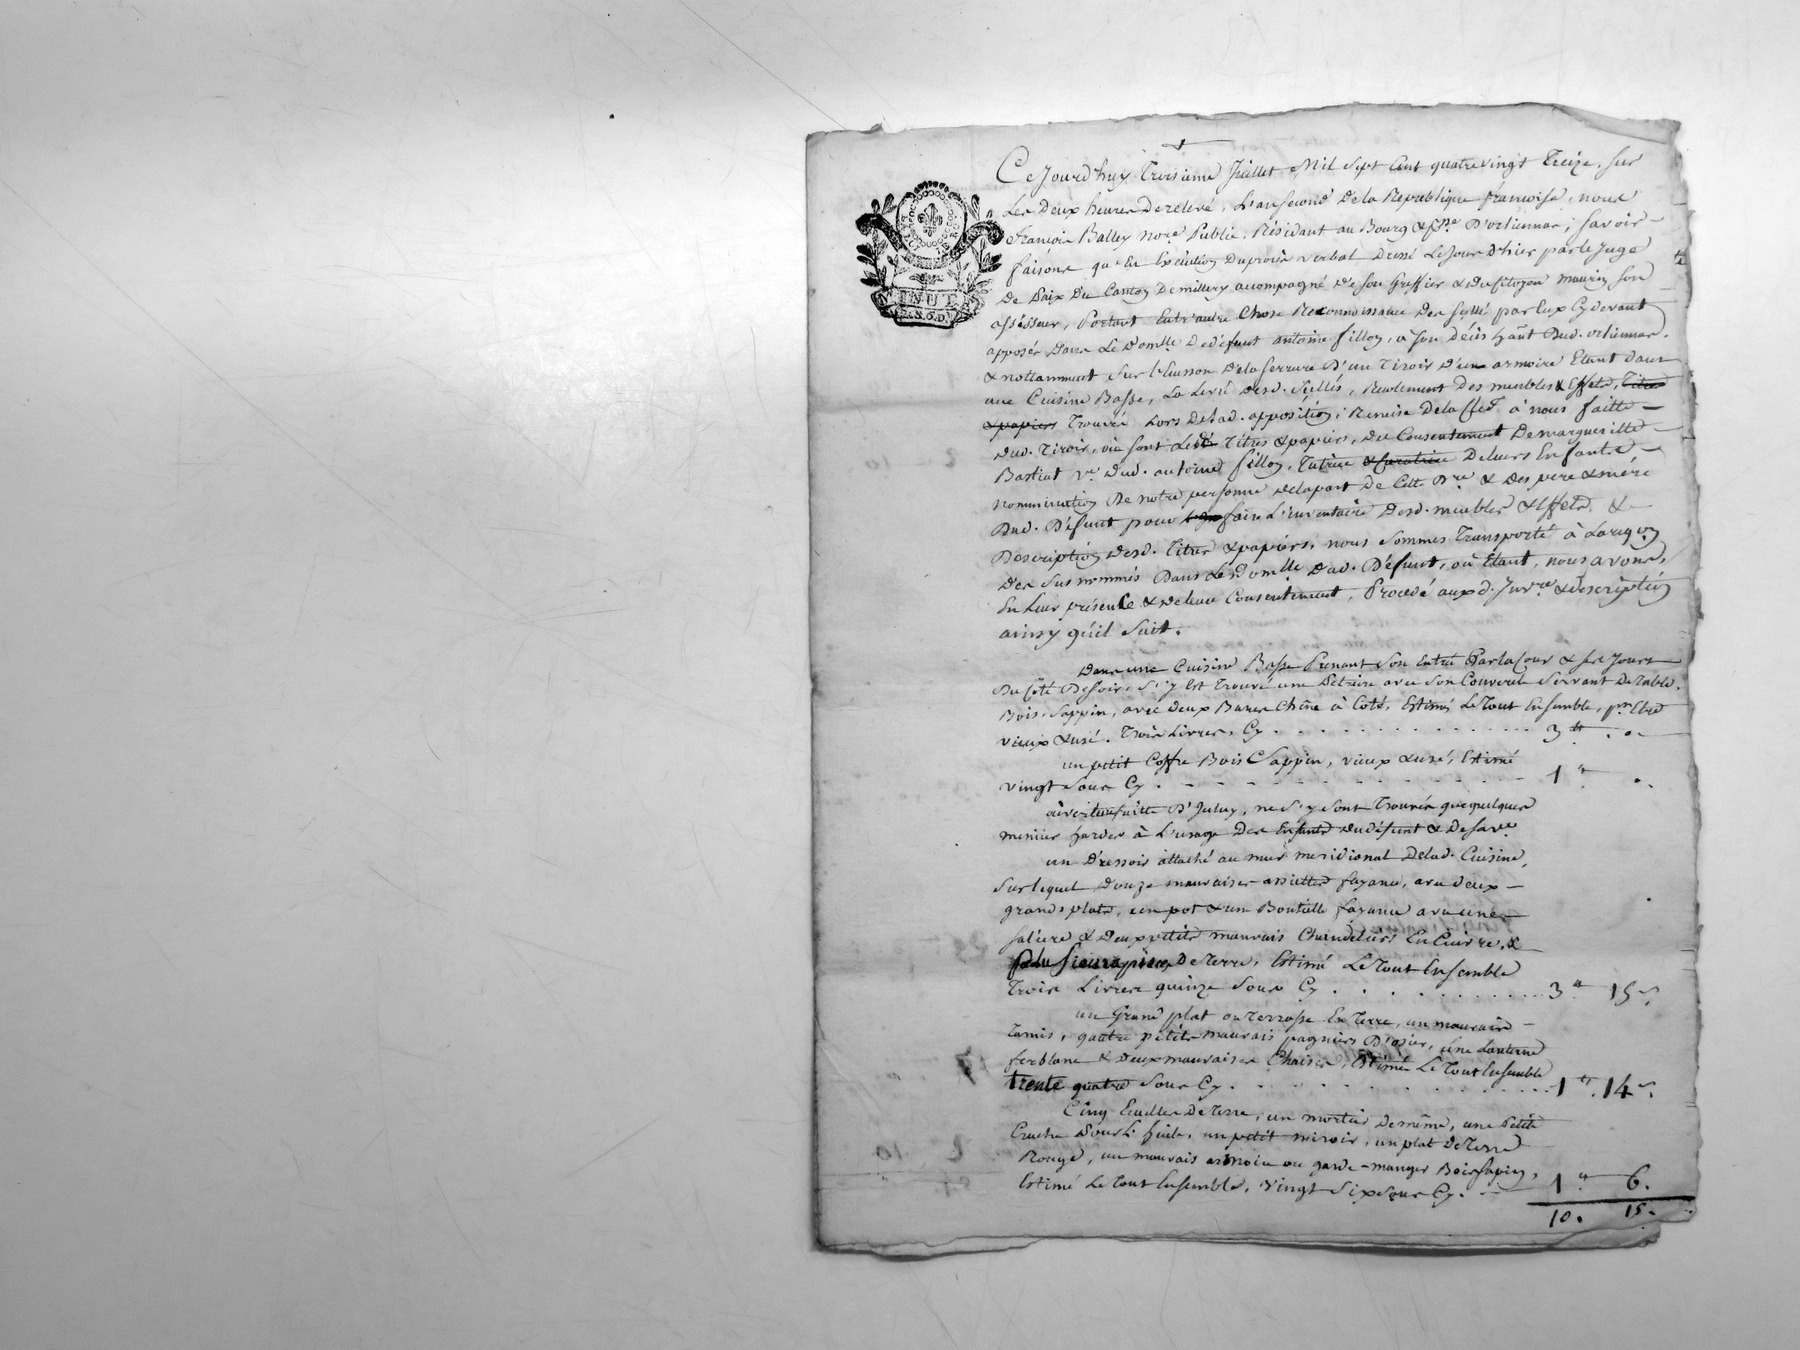 Ce Jourd'huy Troisieme Juillet Mil Sept Cent quatrevingt Treize, Sur
Les Deux heures De relevé, L'an second De la Republique françoise, nous
François Balley nore. Public, Résidant au Bourg & psse D'orliennas, savoir
faisons qu'En Exécution Du procès verbal Dressé Le Jour D'hier par le Juge
De Paix Du Canton De millery accompagné De son Greffier & Du Citoyen maurin son
assésseur, Portant Entr'autre Chose Reconnoissance Des scellé par Eux Cy devant
apposés Dans Le Domlle De défunt antoine fillon, à son décès hâut Dud. orliennas,
& nottamment sur l'Ecusson De la serrure D'un Tiroir D'un armoire Etant dans
une Cuisine Basse, La Levée Desd. scellés, Recolement Des meubles & Effets, Titres
& papiers Trouvés Lors De lad. apposition, Remise De la Clef à nous faitte
dud. Tiroir, où sont Les Titres & papiers, Du Consentement De margueritte
Bastiat ve. Dud. antoine fillon, Tutrice & Curatrice De leurs Enfants,
nommination De notre personne De la part De Cette Dre & Des pere & mére
Dud. Défunt pour faire L'inventaire Desd. meubles & Effets, &
Description Desd. Titres & papiers, nous sommes Transporté à La réqon
Des susnommés Dans Led. Domlle Dud. Défunt, où Etant, nous avons,
En Leur présence & De leur Consentement, Procédé auxd. Invre & description
ainsy qu'il suit.
Dans une Cuisine Basse Prenant son Entré Par la Cour & ses Jours
Du Côté De soir, s'y Est trouvé une Pétriere avec son Couvercle servant De table,
Bois sappin, avec deux Bancs Chêne à Coté, Estimé Le Tout Ensemble, pr. Etre
vieux & usé, Trois Livres, Cy . . . 3tt . .
un petit Coffre Bois sappin, vieux & usé, Estimé
vingt sous Cy . . . 1tt .
ouverture faitte D'Iceluy, ne s'y sont trouvés que quelques
menües hardes à L'usage Des Enfants du défunt & De sa ve
un Dressoir attaché au mur meridional De lad. Cuisine,
sur lequel Douze mauvaises assiettes fayance, avec deux
grands plats, un pot & une Bouteille fayance avec une
saliere & Deux petits mauvais Chandeliers En Cuivre, &
plusieurs pièces De Terre, Estimé Le Tout Ensemble
Trois Livres quinze sous Cy . . . 3tt 15s
un Grand plat ou Terrasse En Terre, un mauvais
Tamis, quatre petits mauvais pagniers D'osier, une Lanterne
ferblanc & Deux mauvaises Chaises, Estimé Le Tout Ensemble
trente quatre sous Cy . . . 1tt. 14s
Cinq Ecuelles De Terre, un mortier De même, une Petite
Cruche huile, un petit miroir, un plat De Terre
Rouge, un mauvais armoire ou garde-manger Bois sapin,
Estimé Le Tout Ensemble, vingt six sous Cy. 1tt 6.
10. 15.
MINUT.